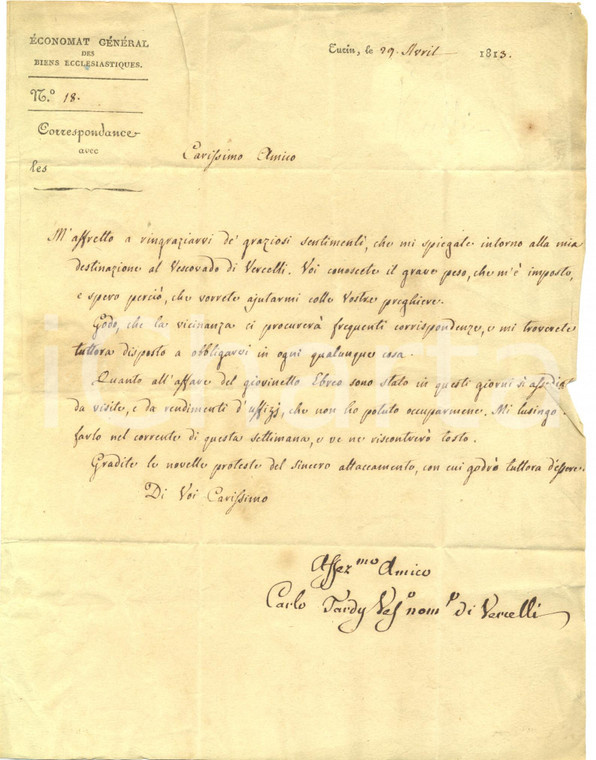 ÉCONOMAT GÉNÉRAL
DES
BIENS ECCLESIASTIQUES.
N.º 18.
Correspondance
avec
les
Turin, le 29 Avril 1813.
Carissimo Amico
M'affretto a ringraziarvi de' graziosi sentimenti, che mi spiegate intorno alla mia
destinazione al Vescovado di Vercelli. Voi conoscete il grave peso, che m'è imposto,
e spero perciò, che vorrete ajutarmi colle Vostre preghiere.
Godo, che la vicinanza ci procurerà frequenti corrispondenze, e mi troverete
tuttora disposto a obbligarvi in ogni qualunque cosa.
Quanto all'affare del giovinetto Ebreo sono stato in questi giorni sì
da visite, e da rendimenti d'uffizj, che non ho potuto occuparmene. Mi lusingo
farlo nel corrente di questa settimana, e ve ne riscontrerò tosto.
Gradite le novelle proteste del sincero attaccamento, con cui godrò tuttora d'essere.
Di Voi Carissimo
Affez.mo Amico
Carlo Tardy Vesº nom.º di Vercelli
iCharta